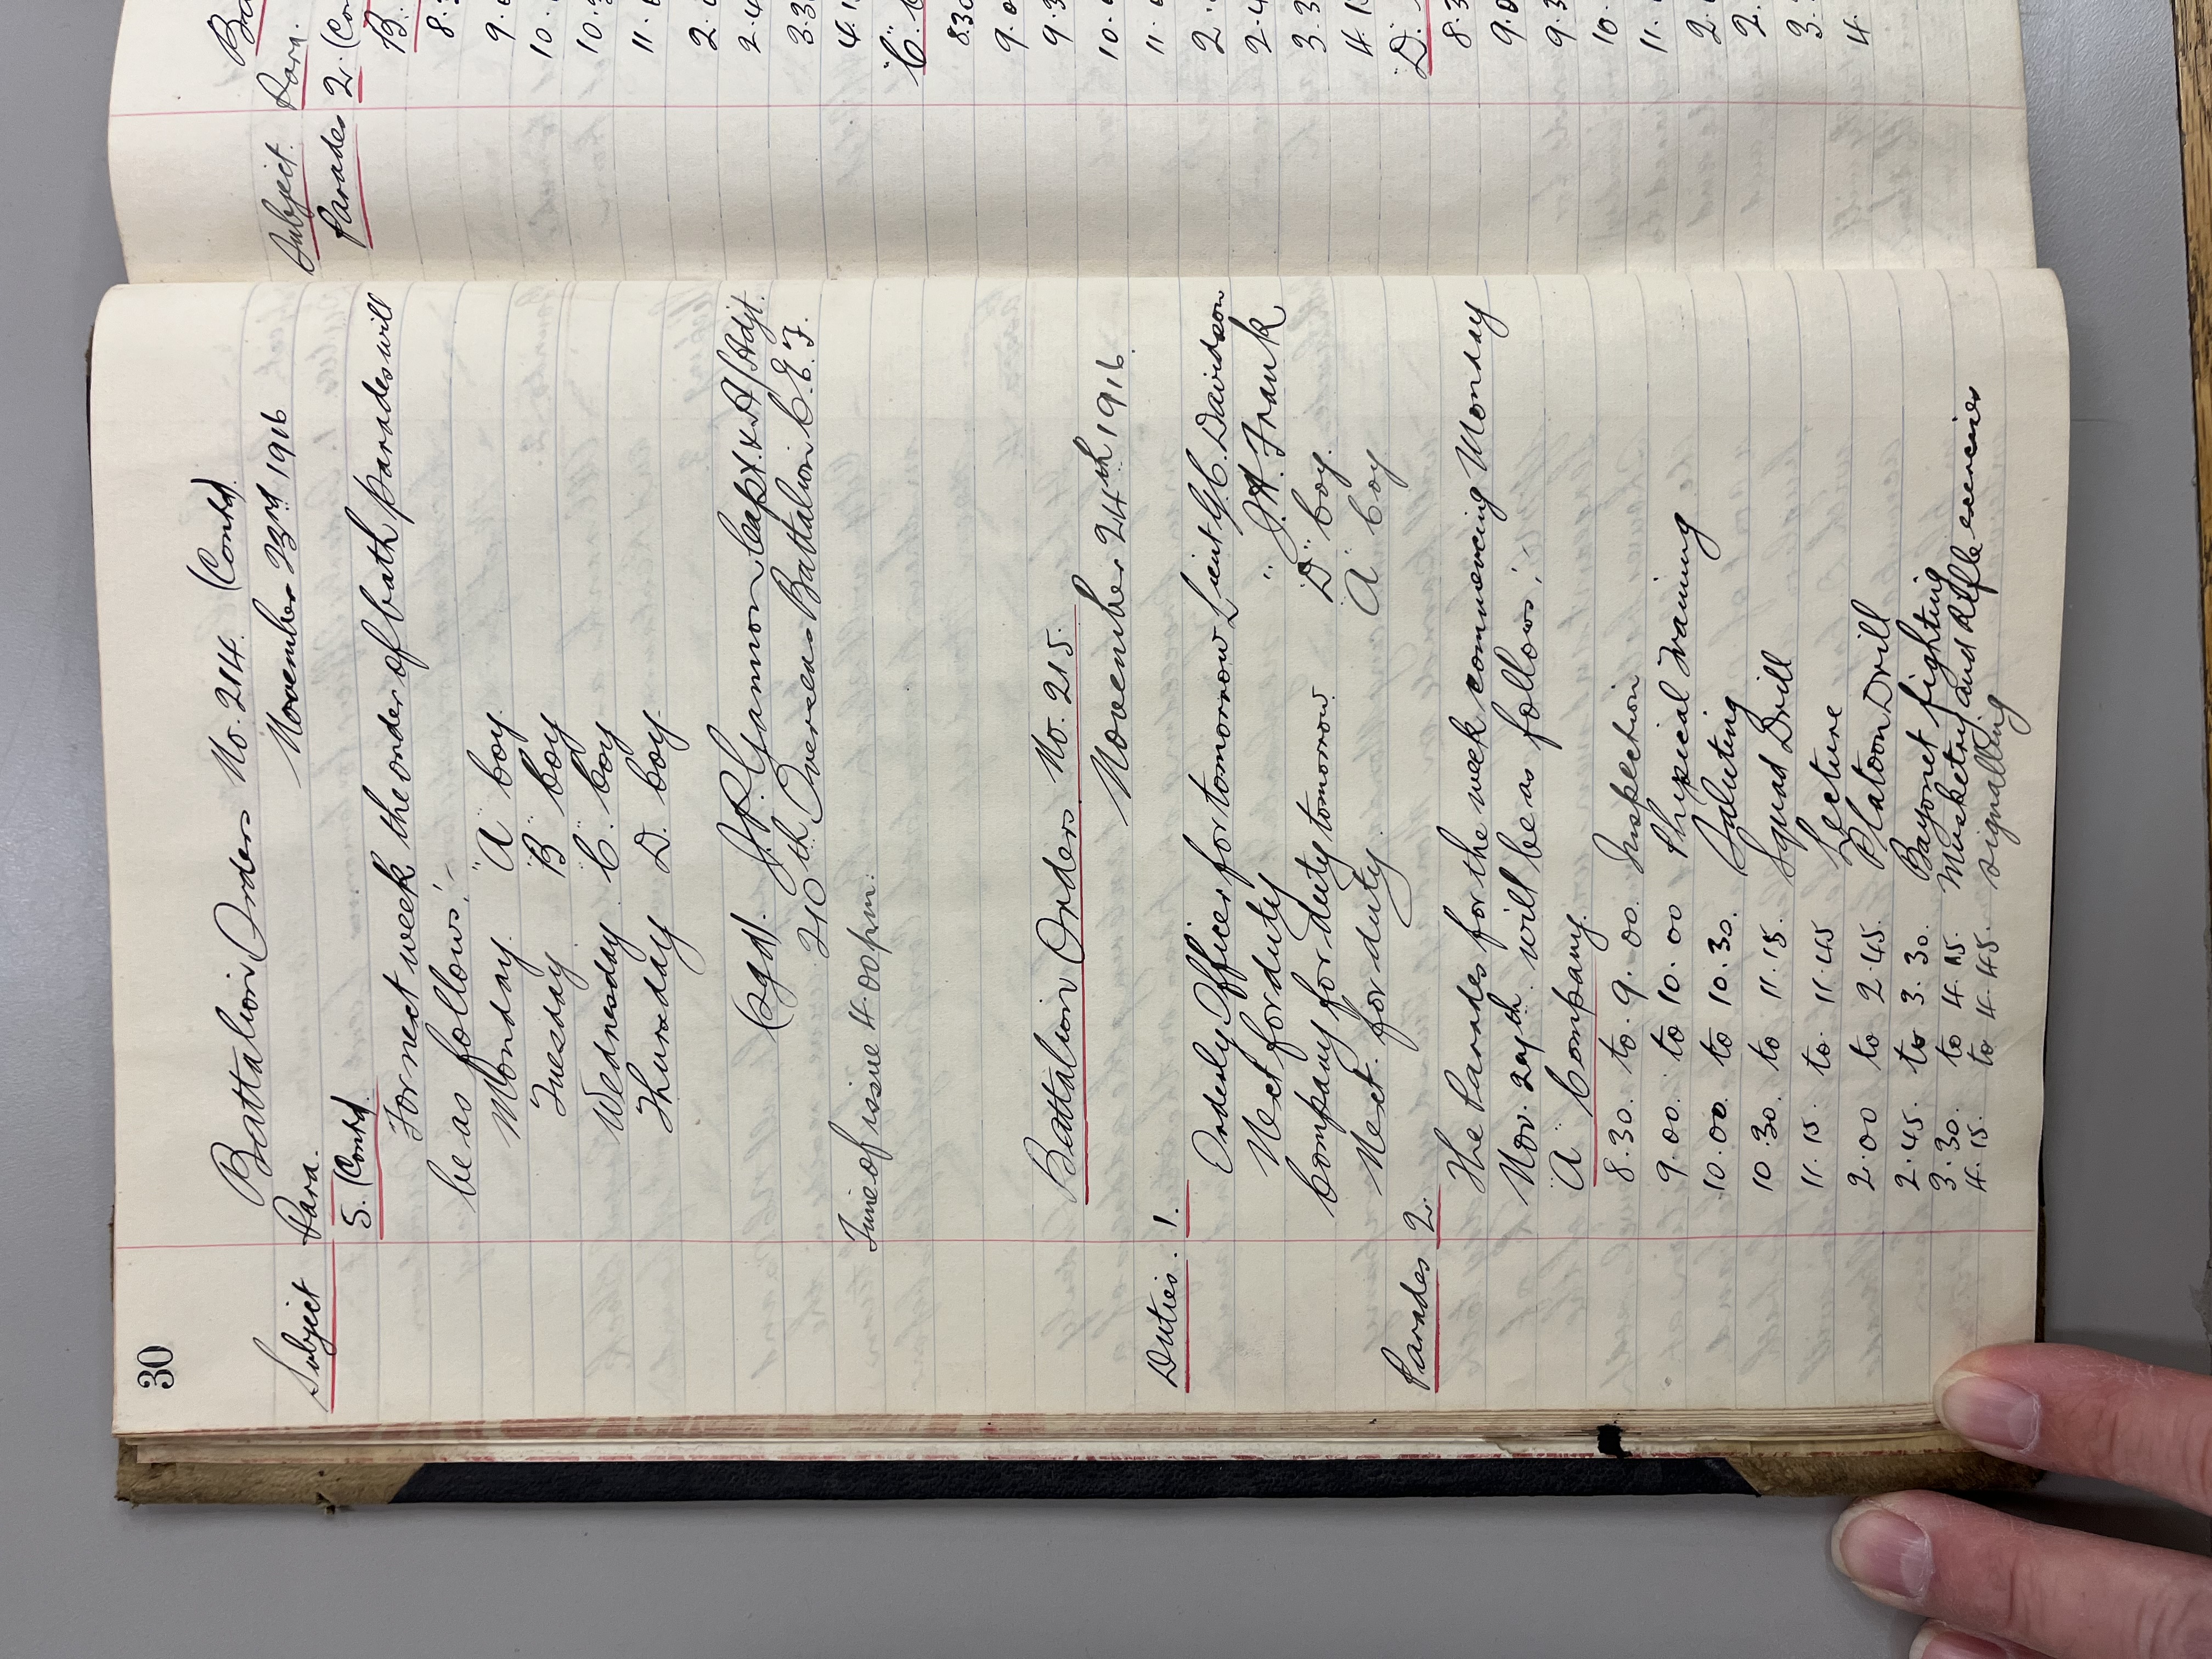 30
Battalion Orders No. 214. (Contd).
November 23rd 1916
Subject Para.
5. (Contd).
For next week the order of bath parades will
be as follows:-
Monday. "A" Coy.
Tuesday "B" Coy
Wednesday "C" Coy
Thursday D. Coy.
(Sgd).
210th. Overseas Battalion C.E.F.
Time of issue 4.00 p.m.
Battalion Orders No. 215.
November 24th 1916.
Duties. 1. Orderly Officer for tomorrow Lieut G.C. Davidson
Next for duty " J.H. Frank
Company for duty tomorrow. "D" Coy.
Next for duty. "A" Coy
Parades 2. The Parades for the week commencing Monday
Nov. 27th. will be as follows:-
"A" Company.
8.30. to. 9.00. Inspection
9.00. to 10.00 Physical Training
10.00. to 10.30. Saluting
10.30. to 11.15. Squad Drill
11.15. to. 11.45 Lecture
2.00 to 2.45. Platoon Drill
2.45. to 3.30. Bayonet fighting
3.30. to 4.15. Musketry and Rifle exercises
4.15. to 4.45. Signalling
Subject. Para.
Parades 2.